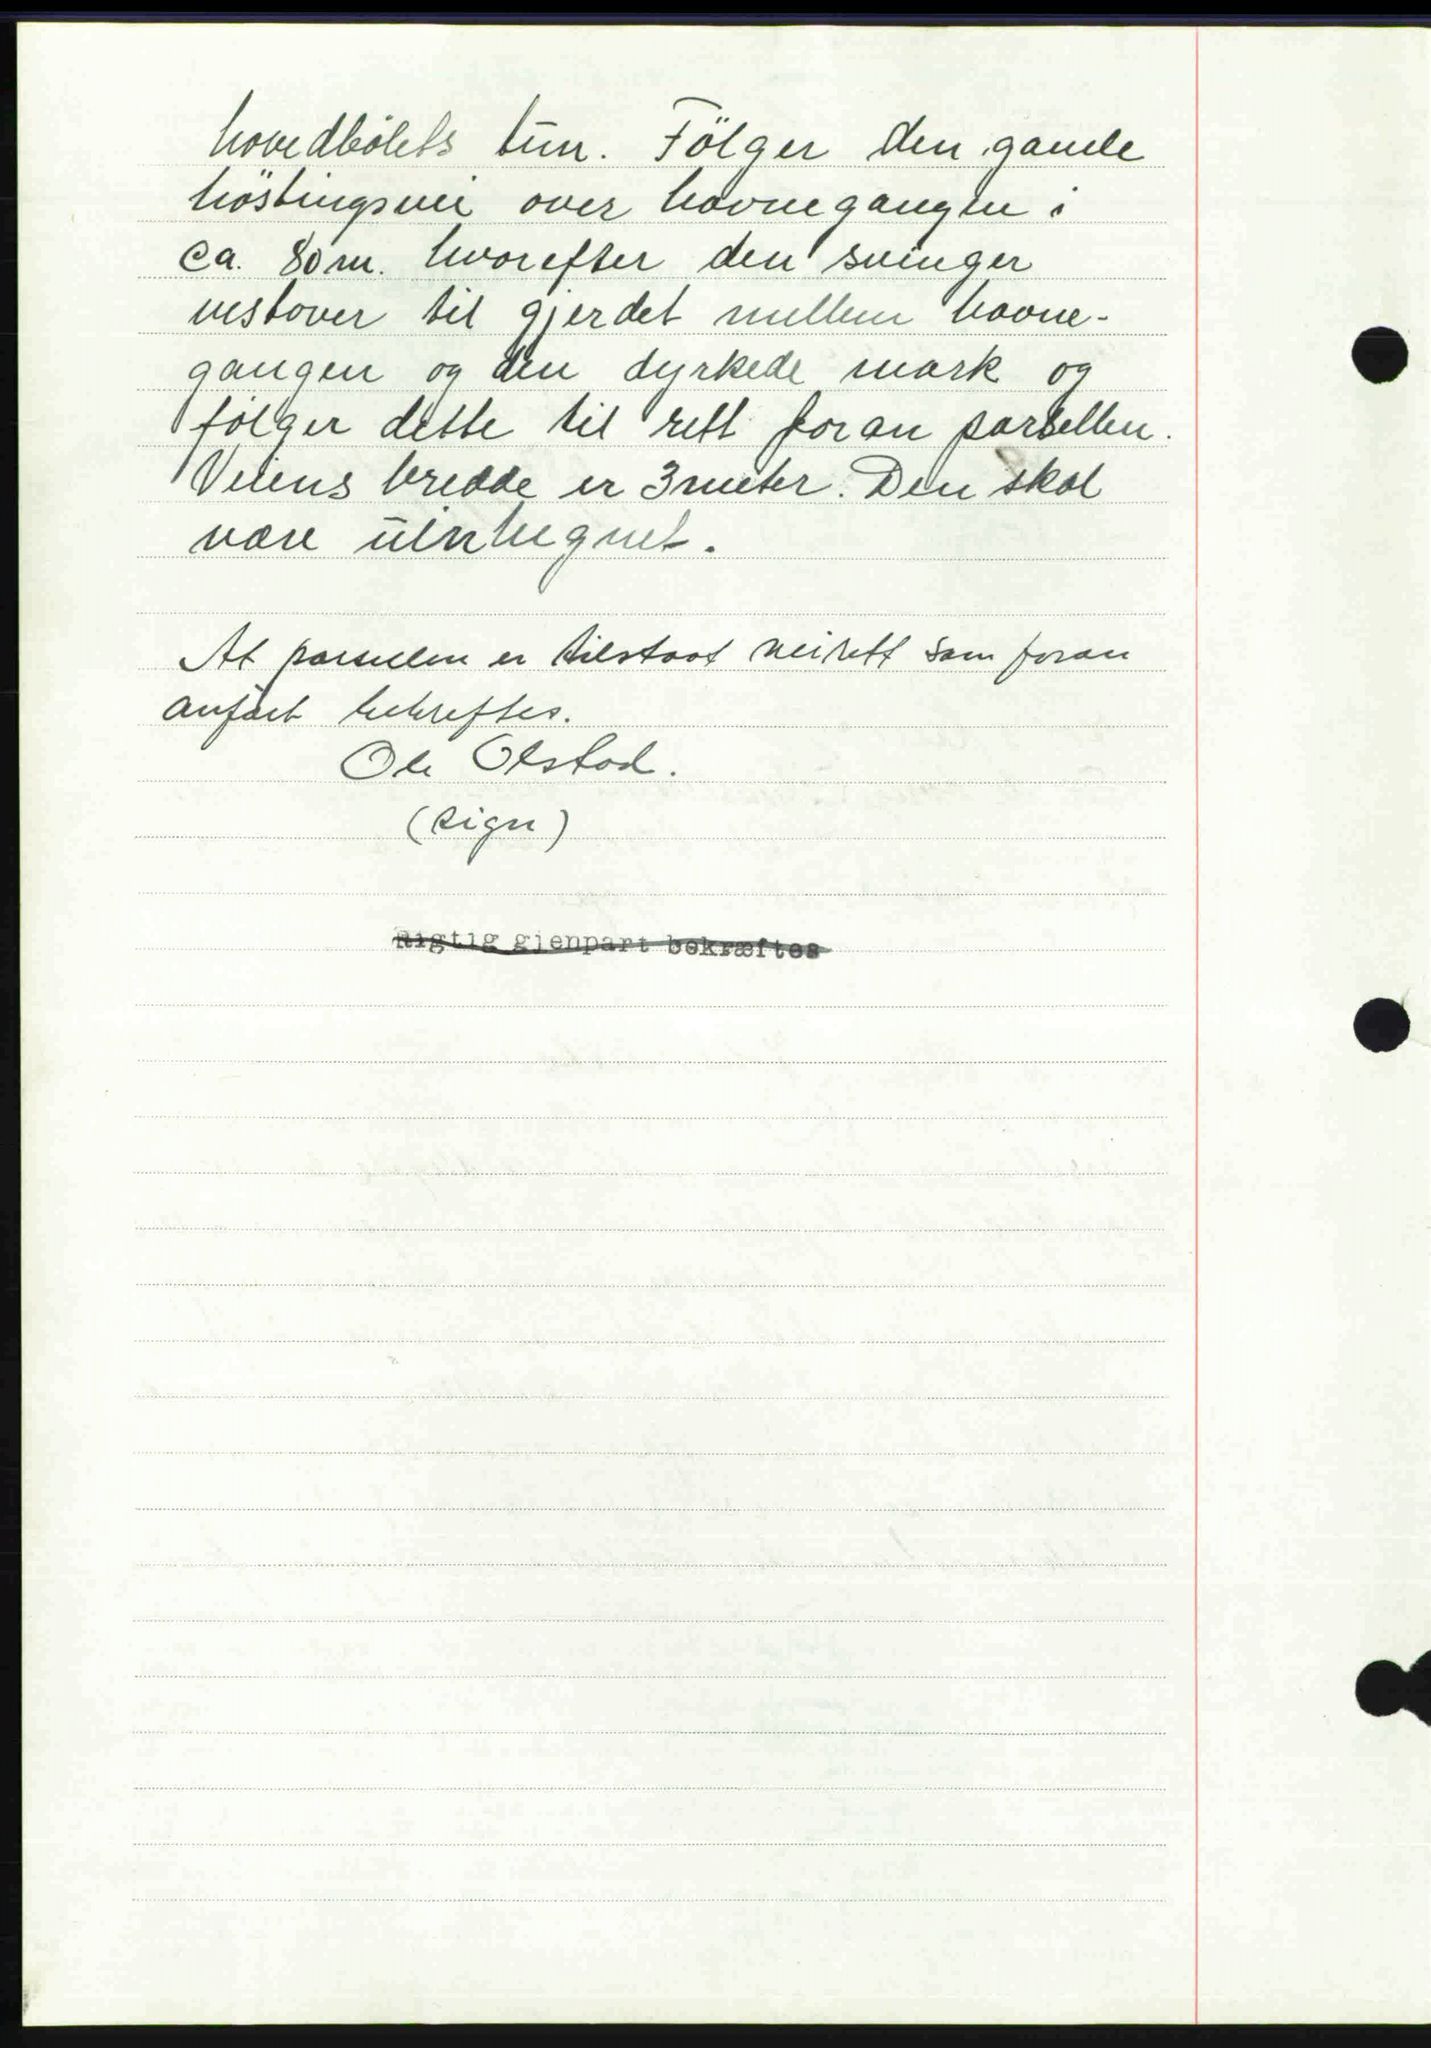 hovedbølets tun. Følger den gamle
høstingsvei over havnegangen i
ca. 80 m. hvorefter den svinger
vestover til gjerdet mellem havne-
gangen og den dyrkede mark og
følger dette til rett foran parsellen.
Veiens bredde er 3 meter. Den skal
være uinhegnet.
At parsellen er tilstaat veirett som foran
anført bekreftes.
Ole Olstad.
(sign)
Rigtig gjenpart bekræftes